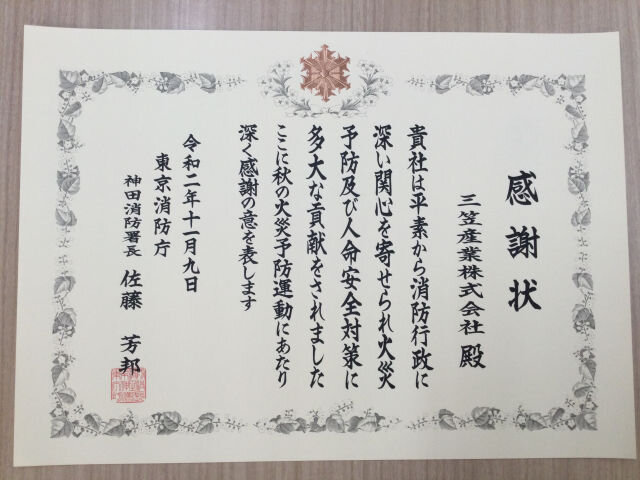 感謝状
三笠産業株式会社 殿
貴社は平素から消防行政に
深い関心を寄せられ火災
予防及び人命安全対策に
多大な貢献をされました
ここに秋の火災予防運動にあたり
深く感謝の意を表します
令和二年十一月九日
東京消防庁
神田消防署長 佐藤 芳邦